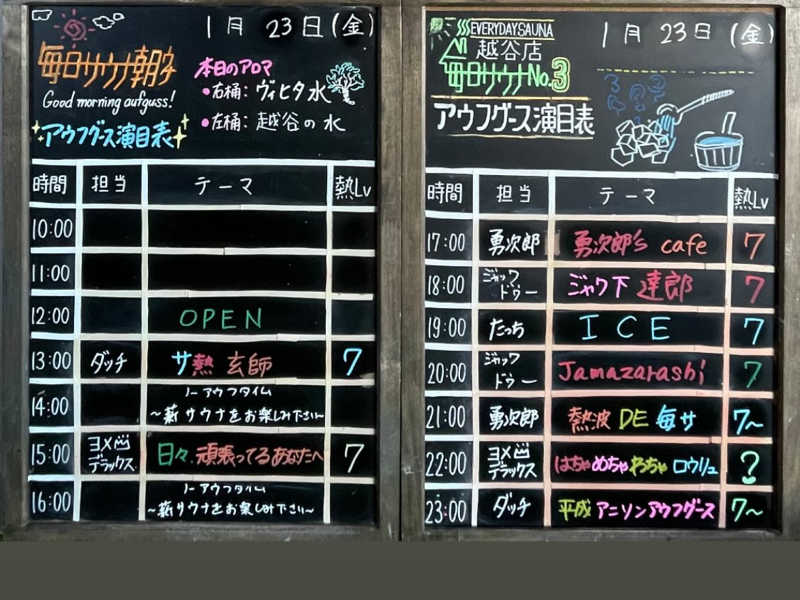 1月 23日(金)
Good morning aufguss!
アウフグース演目表
本日のアロマ
•右桶: ヴィヒタ水
•左桶: 越谷の水
時間 担当 テーマ 熱Lv
10:00
11:00
12:00 OPEN
13:00 ダッチ サ熱 玄師 7
14:00 ノーアウフタイム
～薪サウナをお楽しみ下さい～
15:00 ヨメ デラックス 日々、頑張ってるあなたへ 7
16:00 ノーアウフタイム
～薪サウナをお楽しみ下さい～
EVERYDAY SAUNA
越谷店
毎日サウナ No.3
アウフグース演目表
1月 23日(金)
時間 担当 テーマ 熱Lv
17:00 勇次郎 勇次郎's cafe 7
18:00 ジャックドゥー ジャワ下 達郎 7
19:00 たっち ICE 7
20:00 ジャックドゥー Jamazarashi 7
21:00 勇次郎 熱波 DE 毎サ 7～
22:00 ヨメ デラックス はちゃめちゃわちゃロウリュ ?
23:00 ダッチ 平成アニソンアウフグース 7～